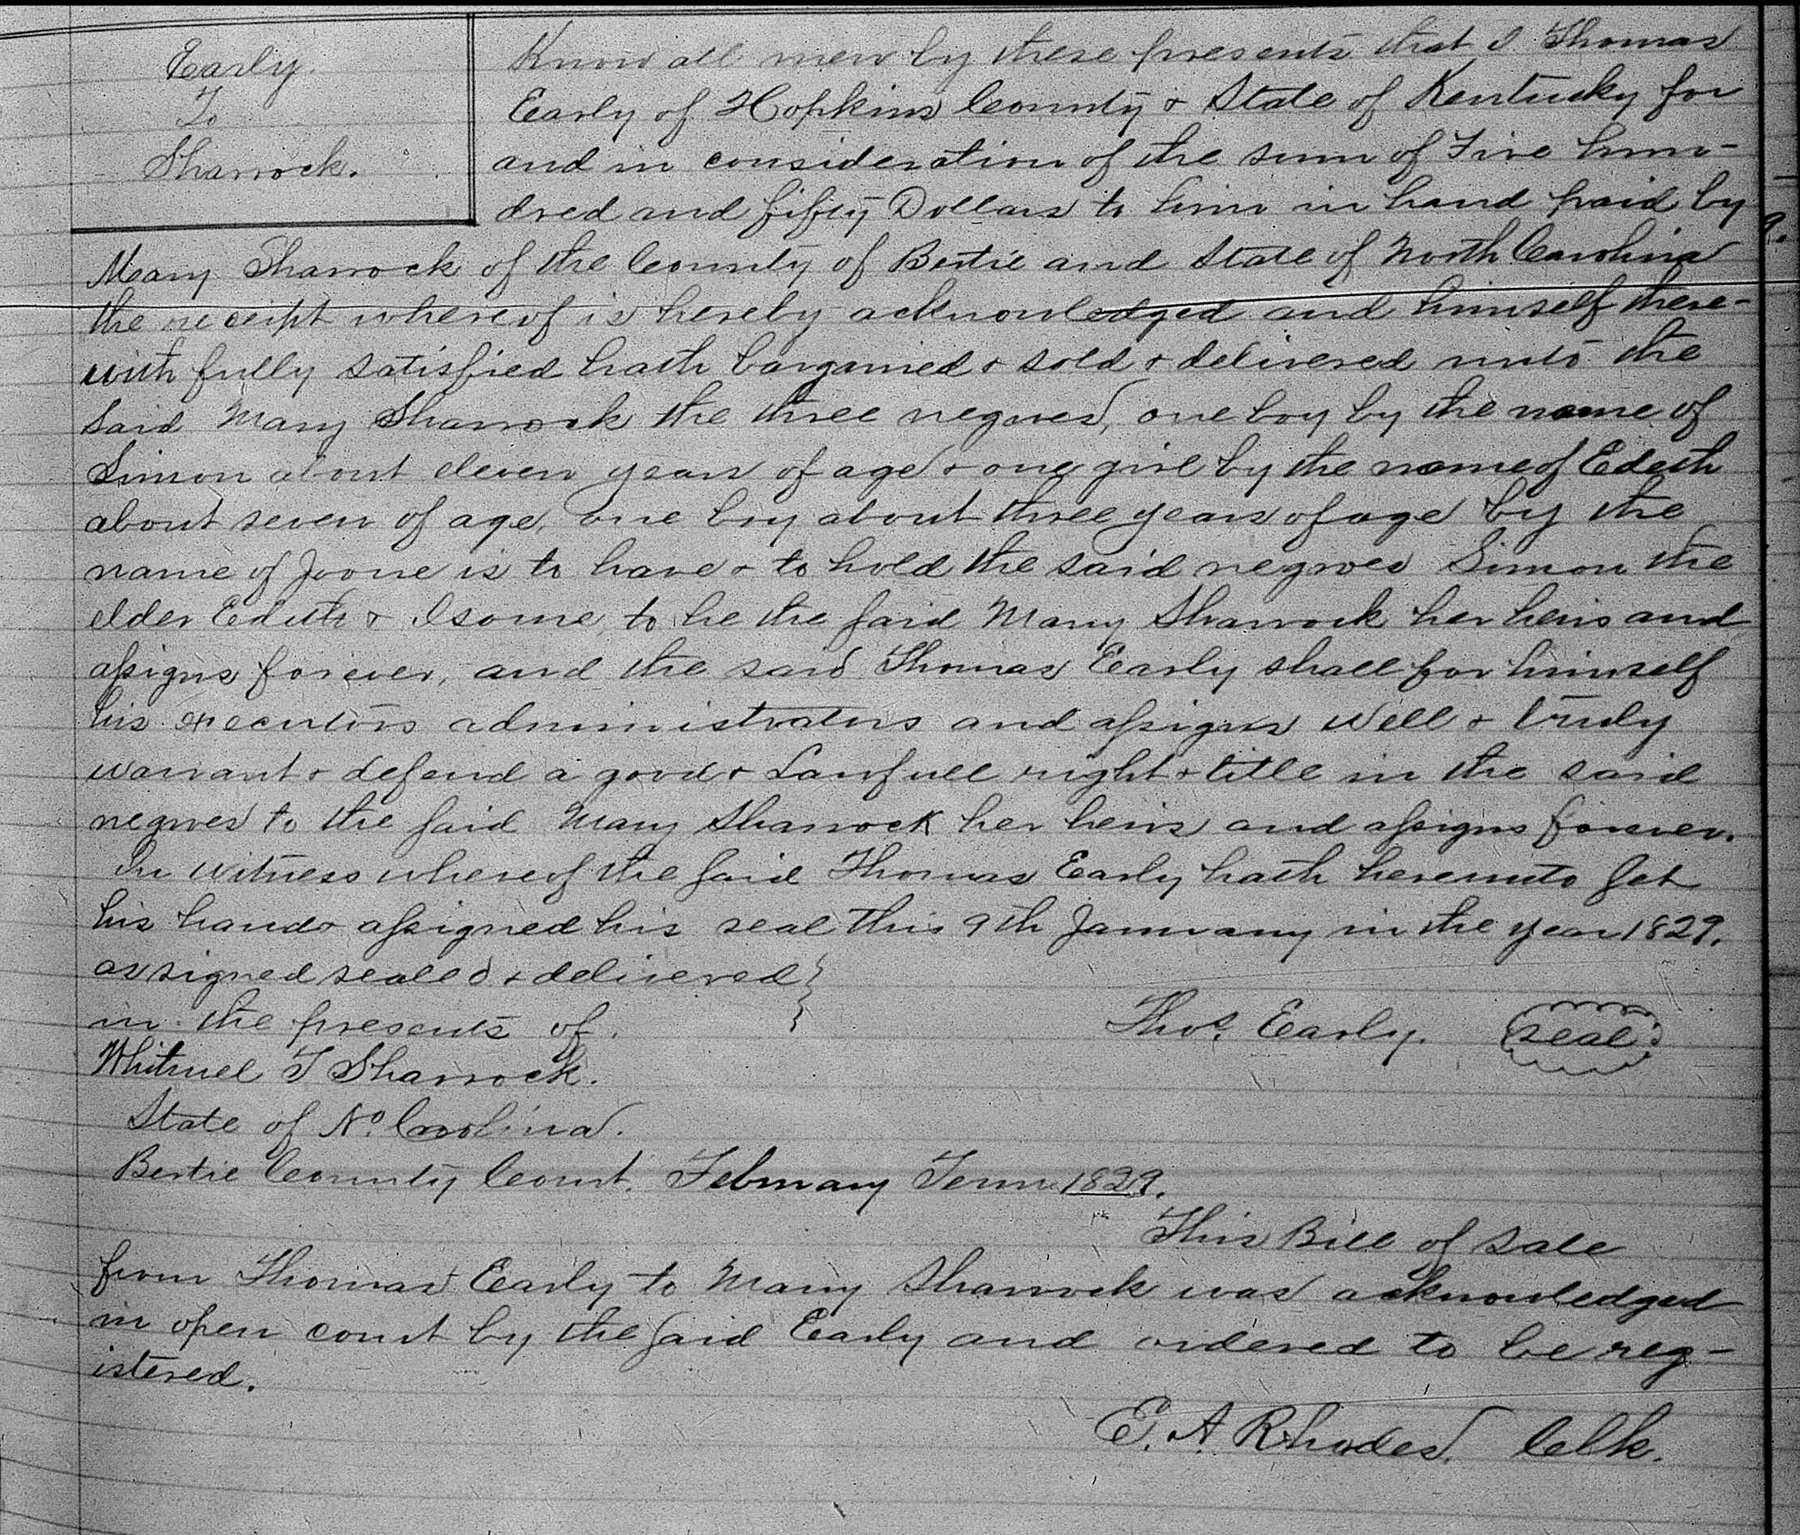 Early
To
Sharrock.
Know all men by these presents that I Thomas
Early of Hopkins County & State of Kentucky for
and in consideration of the sum of Five hun-
dred and fifty Dollars to him in hand paid by
Mary Sharrock of the County of Bertie and State of North Carolina
the receipt whereof is hereby acknowledged and himself there-
with fully satisfied hath bargained & sold & delivered unto the
said Mary Sharrock the three negroes, one boy by the name of
Simon about eleven years of age & one girl by the name of Edeth
about seven of age, one boy about three years of age by the
name of Joone is to have & to hold the said negroes Simon the
elder Edith & Isome to he the said Mary Sharrock her heirs and
assigns forever, and the said Thomas Early shall for himself
his executors administrators and assigns well & truly
warrant & defend a good & Lawfull right & title in the said
negroes to the said Mary Sharrock her heirs and assigns forever.
In witness whereof the said Thomas Early hath hereunto set
his hand & assigned his seal this 9th January in the year 1829.
as signed sealed & delivered
in the presents of.
Thos. Early. seal
Whitmel T Sharrock.
State of No. Carolina.
Bertie County Court. February Term 1829.
This Bill of Sale
from Thomas Early to Mary Sharrock was acknowledged
in open court by the said Early and ordered to be reg-
istered.
E. A. Rhodes. Cclk.